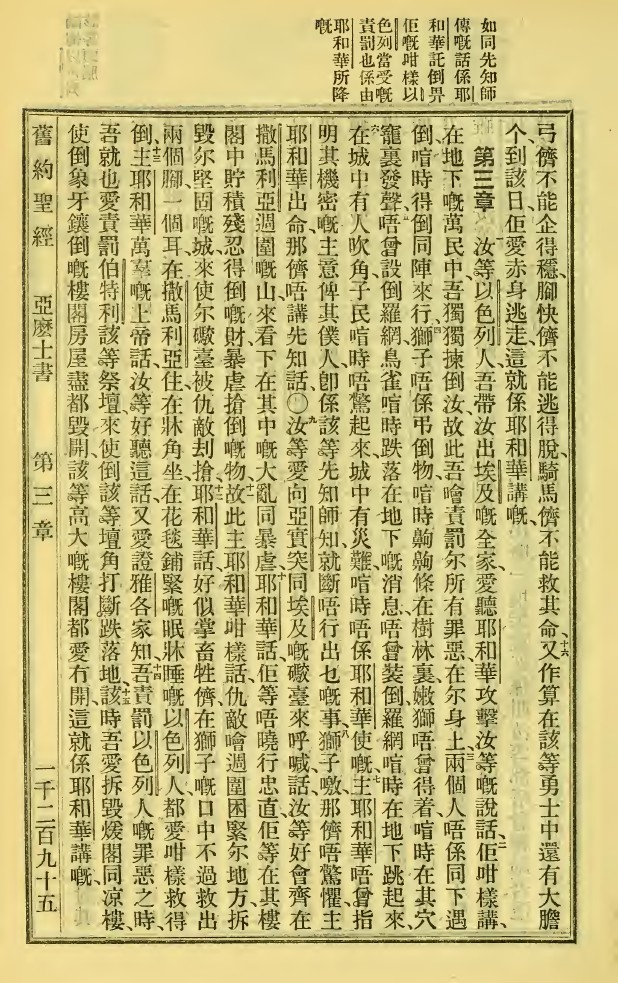 如同先知師
傳嘅話係耶
和華託倒畀
佢嘅咁樣以
色列當受嘅
責罰也係由
耶和華所降
嘅
弓儕不能企得穩、腳快儕不能逃得脫、騎馬儕不能救其命、十六又作算在該等勇士中還有大膽
个、到該日佢愛赤身逃走、這就係耶和華講嘅、
第三章 一汝等以色列人、吾帶汝出埃及嘅全家、愛聽耶和華攻擊汝等嘅說話、佢咁樣講、二
在地下嘅萬民中、吾獨獨揀倒汝、故此吾噲責罰尔所有罪惡在尔身上、三兩個人唔係同下遇
倒、喑時得倒同陣來行、四獅子唔係弔倒物、喑時齁齁條在樹林裏、嫩獅唔曾得着、喑時在其穴
竉裏發聲、五唔曾設倒羅網、鳥雀喑時跌落在地下嘅消息、唔曾裝倒羅網喑時在地下跳起來、
六在城中有人吹角、子民喑時唔驚起來、城中有災難、喑時唔係耶和華使嘅、七主耶和華唔曾指
明其機密嘅主意俾其僕人、卽係該等先知師知、就斷唔行出乜嘅事、八獅子噭、那儕唔驚懼、主
耶和華出命、那儕唔講先知話、〇九汝等愛向亞實突、同埃及嘅礮臺來呼喊、話、汝等好會齊在
撒馬利亞週圍嘅山、來看下在其中嘅大亂同暴虐、十耶和華話、佢等唔曉行忠直、佢等在其樓
閣中貯積殘忍得倒嘅財、暴虐搶倒嘅物、十一故此主耶和華咁樣話、仇敵噲週圍困緊尔地方、拆
毀尔堅固嘅城、來使尔礮臺被仇敵刦搶、十二耶和華話、好似掌畜牲儕在獅子嘅口中、不過救出
兩個腳、一個耳、在撒馬利亞住、在牀角坐、在花毯鋪緊嘅眠牀睡嘅以色列人、都愛咁樣救得
倒、十三主耶和華萬羣嘅上帝話、汝等好聽這話、又愛證雅各家知、十四吾責罰以色列人嘅罪惡之時、
吾就也愛責罰伯特利該等祭壇、來使倒該等壇角打斷跌落地、十五該時吾愛拆毀燠閣同凉樓、
使倒象牙鑲倒嘅樓閣房屋盡都毀開、該等高大嘅樓閣都愛冇開、這就係耶和華講嘅、
舊約聖經 亞麽士書 第三章 一千二百九十五